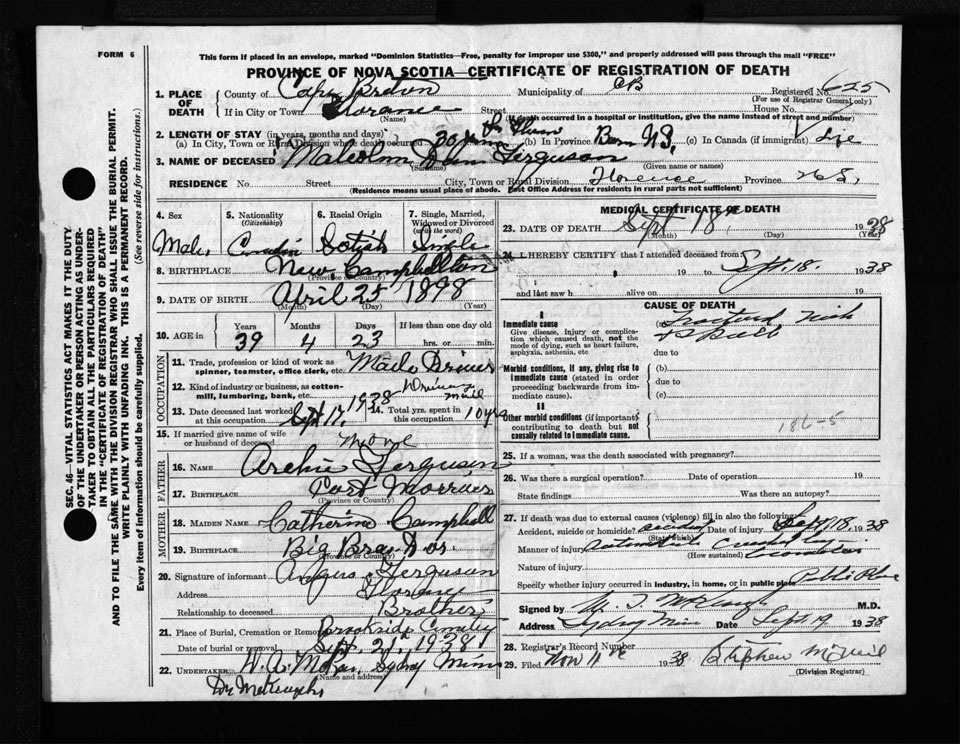 FORM 6
This form if placed in an envelope, marked "Dominion Statistics—Free, penalty for improper use $300," and properly addressed will pass through the mail "FREE"
PROVINCE OF NOVA SCOTIA—CERTIFICATE OF REGISTRATION OF DEATH
SEC. 46—VITAL STATISTICS ACT MAKES IT THE DUTY
OF THE UNDERTAKER OR PERSON ACTING AS UNDER-
TAKER TO OBTAIN ALL THE PARTICULARS REQUIRED
IN THE "CERTIFICATE OF REGISTRATION OF DEATH"
AND TO FILE THE SAME WITH THE DIVISION REGISTRAR WHO SHALL ISSUE THE BURIAL PERMIT.
WRITE PLAINLY WITH UNFADING INK. THIS IS A PERMANENT RECORD.
Every item of information should be carefully supplied. (See reverse side for instructions.)
1. PLACE OF DEATH County of Cape Breton Municipality of CB Registered No. 625
(For use of Registrar General only)
If in City or Town Florence Street House No.
(Name) (If death occurred in a hospital or institution, give the name instead of street and number)
2. LENGTH OF STAY (in years, months and days)
(a) In City, Town or Rural Division where death occurred 30 (b) In Province Born N.S. (c) In Canada (if immigrant) Life
3. NAME OF DECEASED Malcolm Dan Ferguson
(Surname) (Given name or names)
RESIDENCE No. Street City, Town or Rural Division Florence Province N.S.
(Residence means usual place of abode. Post Office Address for residents in rural parts not sufficient)
4. Sex 5. Nationality 6. Racial Origin 7. Single, Married,
(Citizenship) Widowed or Divorced
(write the word)
Male Scotish Single
8. BIRTHPLACE New Campbellton
(Province or Country)
9. DATE OF BIRTH April 25 1898
(Month) (Day) (Year)
10. AGE in Years Months Days If less than one day old
39 4 23 hrs. or min.
OCCUPATION
11. Trade, profession or kind of work as
spinner, teamster, office clerk, etc. Mail Driver
12. Kind of industry or business, as cotton-
mill, lumbering, bank, etc. Driving Mail
13. Date deceased last worked
at this occupation Sept 17, 1938 14. Total yrs. spent in
this occupation 10 yrs
15. If married give name of wife
or husband of deceased None
FATHER
16. NAME Archie Ferguson
17. BIRTHPLACE Port Morrien
(Province or Country)
MOTHER
18. MAIDEN NAME Catherine Campbell
19. BIRTHPLACE Big Bras Dor
(Province or Country)
20. Signature of informant Angus Ferguson
Address Florence
Relationship to deceased Brother
21. Place of Burial, Cremation or Removal Brookside
Date of burial or removal Sept. 21st 1938
22. UNDERTAKER Sydney Mines
(Name and address)
MEDICAL CERTIFICATE OF DEATH
23. DATE OF DEATH Sept 18 1938
(Month) (Day) (Year)
24. I HEREBY CERTIFY that I attended deceased from
19 to Sept. 18. 1938
and last saw h alive on 19
CAUSE OF DEATH
I
Immediate cause
Give disease, injury or complica-
tion which caused death, not the
mode of dying, such as heart failure,
asphyxia, asthenia, etc
(a) Fractured Neck
& Skull
due to
Morbid conditions, if any, giving rise to
immediate cause (stated in order
proceeding backwards from im-
mediate cause).
(b)
due to
(c)
II
Other morbid conditions (if important)
contributing to death but not
causally related to immediate cause.
186-5
25. If a woman, was the death associated with pregnancy?
26. Was there a surgical operation? Date of operation 19
State findings Was there an autopsy?
27. If death was due to external causes (violence) fill in also the following:
Accident, suicide or homicide? accident Date of injury Sept. 18. 1938
(State which)
Manner of injury Automobile
(How sustained)
Nature of injury
Specify whether injury occurred in industry, in home, or in public place Public Place
Signed by M.D.
Address Sydney Mines Date Sept. 19 1938
28. Registrar's Record Number
29. Filed Nov 11 1938 Stephen McNeil
(Division Registrar)